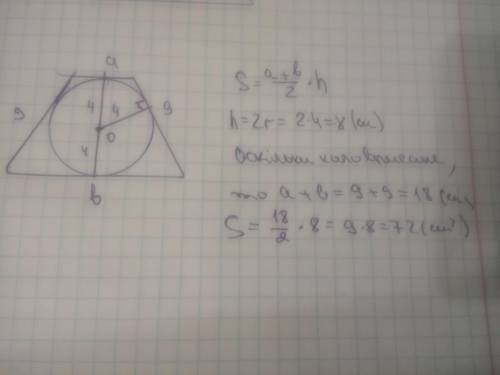 a
9
4
4
9
O
4
b
S = a+b/2 · h
h = 2r = 2·4 = 8 (см)
Оскільки коло вписане,
то a + b = 9 + 9 = 18 (см)
S = 18/2 · 8 = 9 · 8 = 72 (см²)